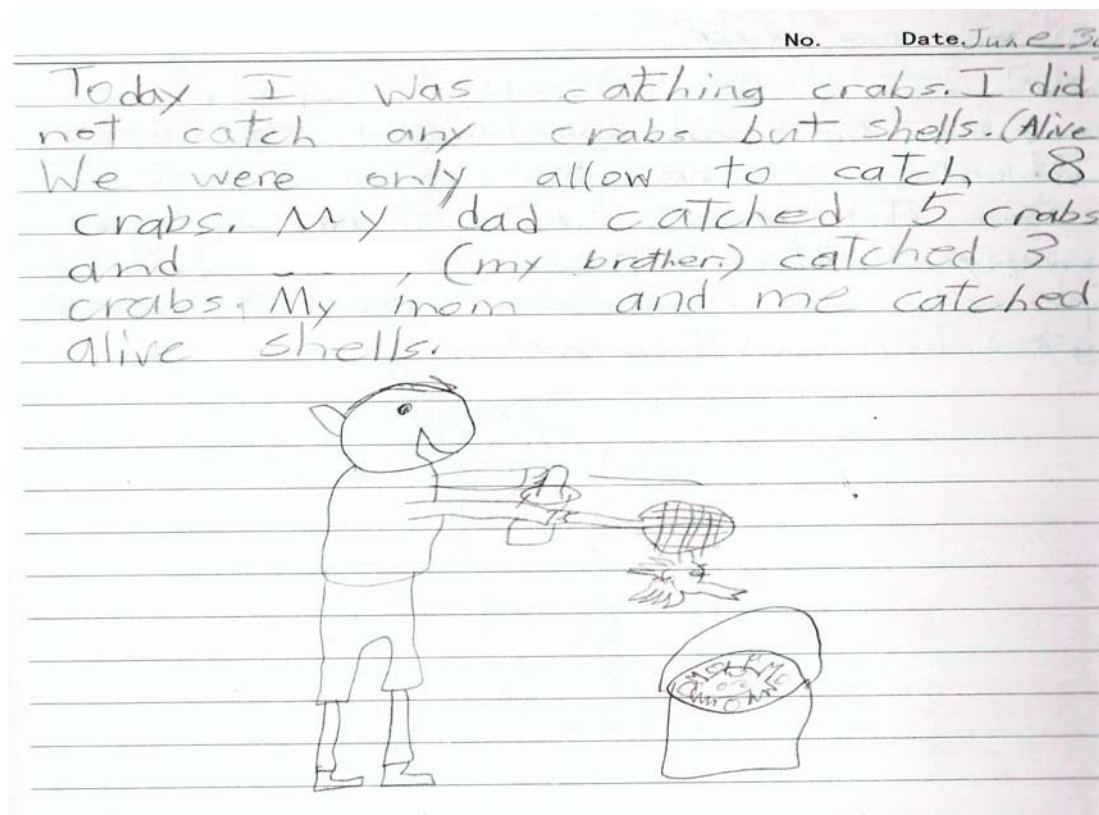 No. Date. June 30
Today I was catching crabs. I did
not catch any crabs but shells. (Alive
We were only allow to catch 8
crabs. My dad catched 5 crabs
and , (my brother) catched 3
crabs. My mom and me catched
alive shells.